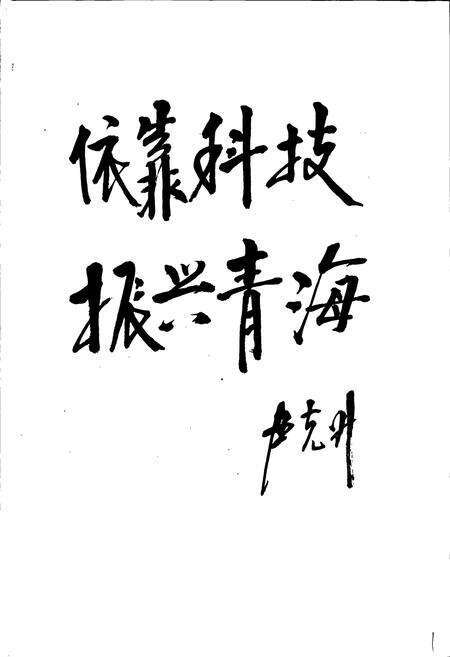 依靠科技
振兴青海
卢克明